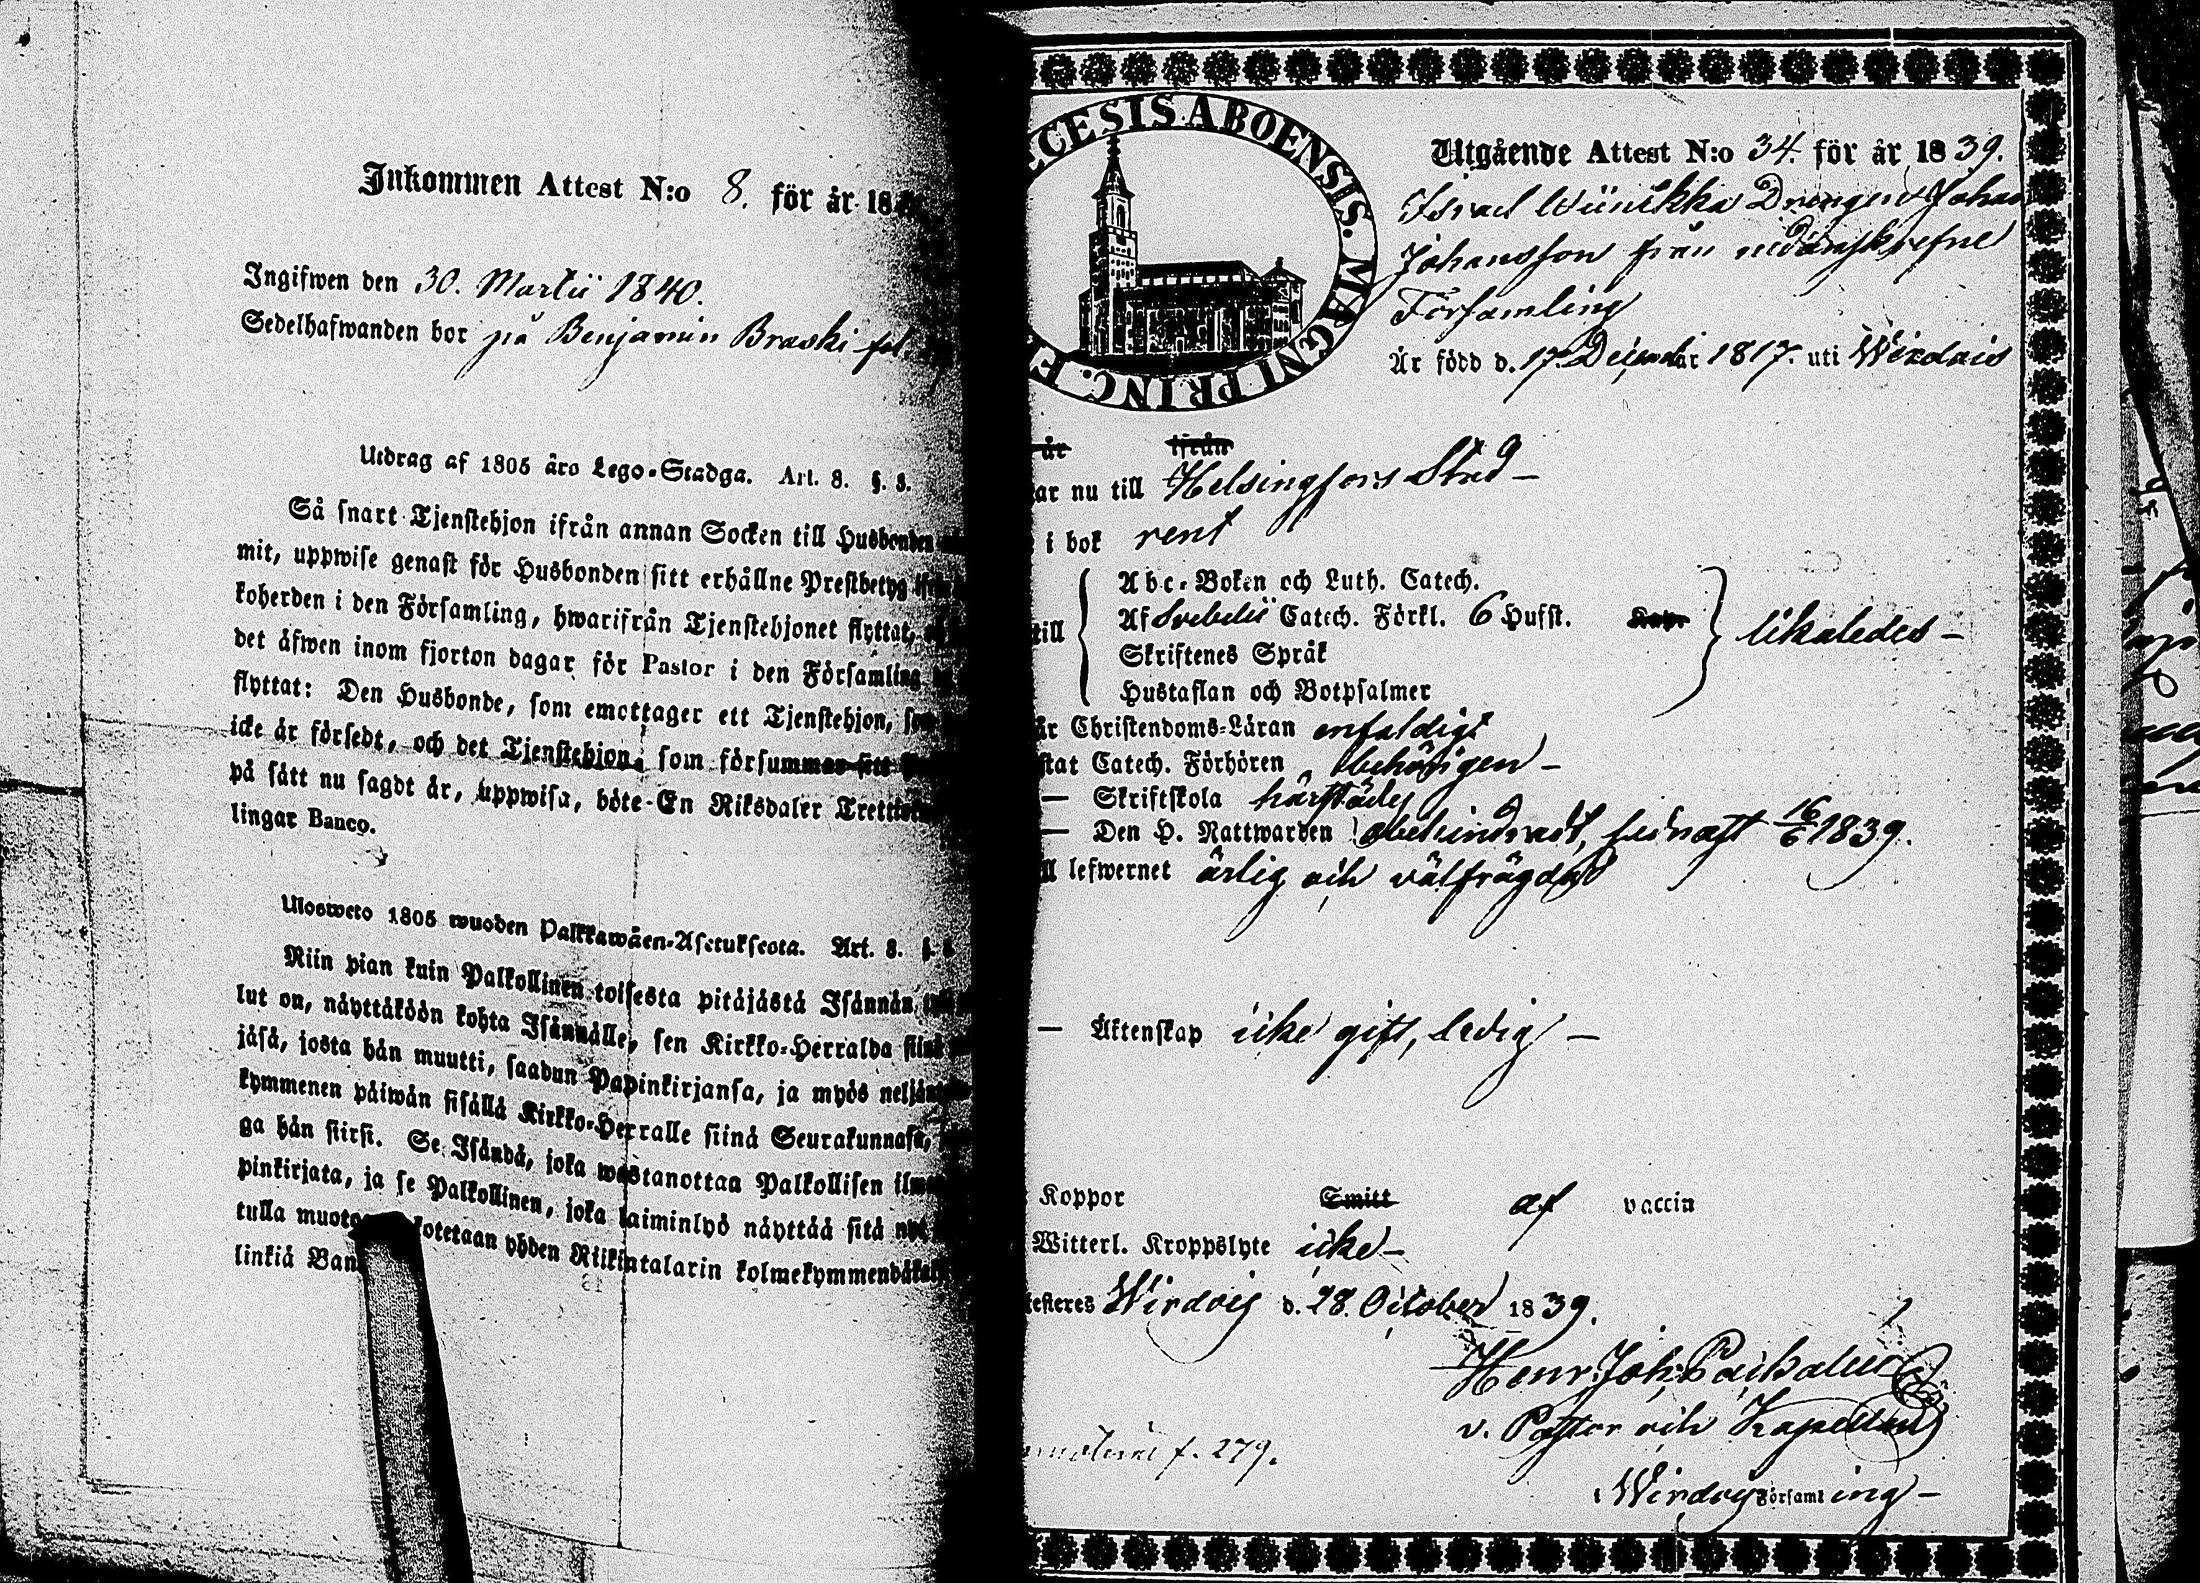 Inkommen Attest N:o 8. för år 18
Ingifwen den 30. Martii 1840.
Sedelhafwanden bor på Benjamin Braski
Utdrag af 1805 års Lego-Stadga. Art. 8. §. 3.
Så snart Tjenstehjon ifrån annan Socken till Husbonden
mit, uppwise genast för Husbonden sitt erhållne Prestbetyg
koherden i den Församling, hwarifrån Tjenstehjonet flyttat,
det äfwen inom fjorton dagar för Pastor i den Församling
flyttat: Den Husbonde, som emottager ett Tjenstehjon,
icke är försedt, och det Tjenstehjon, som försummar sitt
på sätt nu sagdt är, uppwisa, böte En Riksdaler
lingar Banco.
Ulosweto 1805 wuoden Palkkawäen-Asetuksesta. Art. 8. §.
Niin pian kuin Palkollinen toisesta pitäjästä Isännän
lut on, näyttäköön kohta Isännälle, sen Kirkko-Herralda
jäsä, josta hän muutti, saadun Papinkirjansa, ja myös
kymmenen päiwän sisällä Kirkko-Herralle siinä Seurakunnasa,
ga hän siirsi. Se Isändä, joka wastanottaa Palkollisen
pinkirjata, ja se Palkollinen, joka laiminlyö näyttää sitä
tulla yhden Riikintalarin
linkiä
ECESIS ABOENSIS. MAGNI PRINC. F
Utgående Attest N:o 34. för år 1839.
Israel Drängen Johan
Johansson från nedanskrefne
Församling
Är född d. 17 December 1817. uti Wirdois
är ifrån
ar nu till Helsingfors Stad –
i bok rent
till
Abc-Boken och Luth. Catech.
Af Svebelii Catech. Förkl. 6 Hufst.
Skriftenes Språk
Hustaflan och Botpsalmer
likaledes –
är Christendoms-Läran enfaldigt
stat Catech. Förhören behörigen –
— Skriftskola härstädes
— Den H. Nattwarden obehindradt, sednast 16/6 1839.
ll lefwernet ärlig och välfrägdad
— Äktenskap icke gift, ledig –
Koppor Smitt af vaccin
Witterl. Kroppslyte icke –
testeres Wirdois d. 28. October 1839.
Henr. Joh.
v. Pastor och Kapellan
i Wirdois Församling –
f. 279.